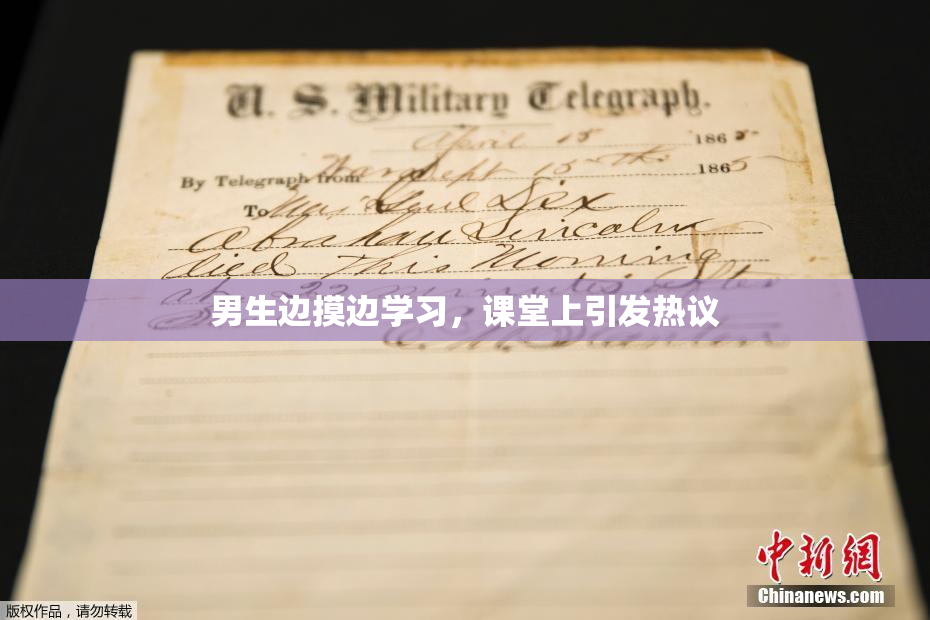 U. S. Military Telegraph.
April 15 1865
By Telegraph from War Dept 15th 1865
To Maj Genl Dix
Abraham Lincoln
died This Morning
at 22 minutes after
男生边摸边学习，课堂上引发热议
E. M. Stanton
中新网
Chinanews.com
版权作品，请勿转载